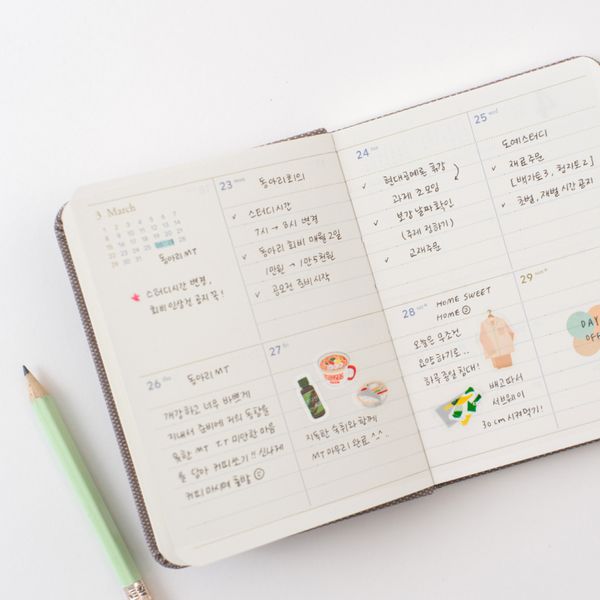 3 March
1 2 3 4 5 6 7
8 9 10 11 12 13 14
15 16 17 18 19 20 21
22 23 24 25 26 27 28
29 30 31
동아리 MT
스터디시간 변경,
회비 인상건 공지 꼭!
23 mon
동아리회의
✓ 스터디시간
7시 → 8시 변경
✓ 동아리 회비 매월 2일
1만원 → 1만 5천원
✓ 공모전 준비 시작
24 tue
✓ 현대공예론 휴강
과제 조모임
✓ 보강 날짜 확인
(주제 정하기)
✓ 교재주문
25 wed
도예스터디
✓ 재료주문
[백자토3, 청자토2]
✓ 초벌, 재벌 시간 공지
26 thu
동아리 MT
개강하고 너무 바쁘게
지내서 준비에 거의 동참을
못한 MT T.T 미안한 마음
을 담아 커피쏘기!! 신나게
커피 마시며 출발
27 fri
지독한 숙취와 함께
MT 마무리 완료 ^.^.
28 sat
HOME SWEET
HOME
오늘은 무조건
요양하기로..
하루종일 침대!
배고파서
서브웨이
30cm 시켜먹기!
29 sun
DAY
OFF